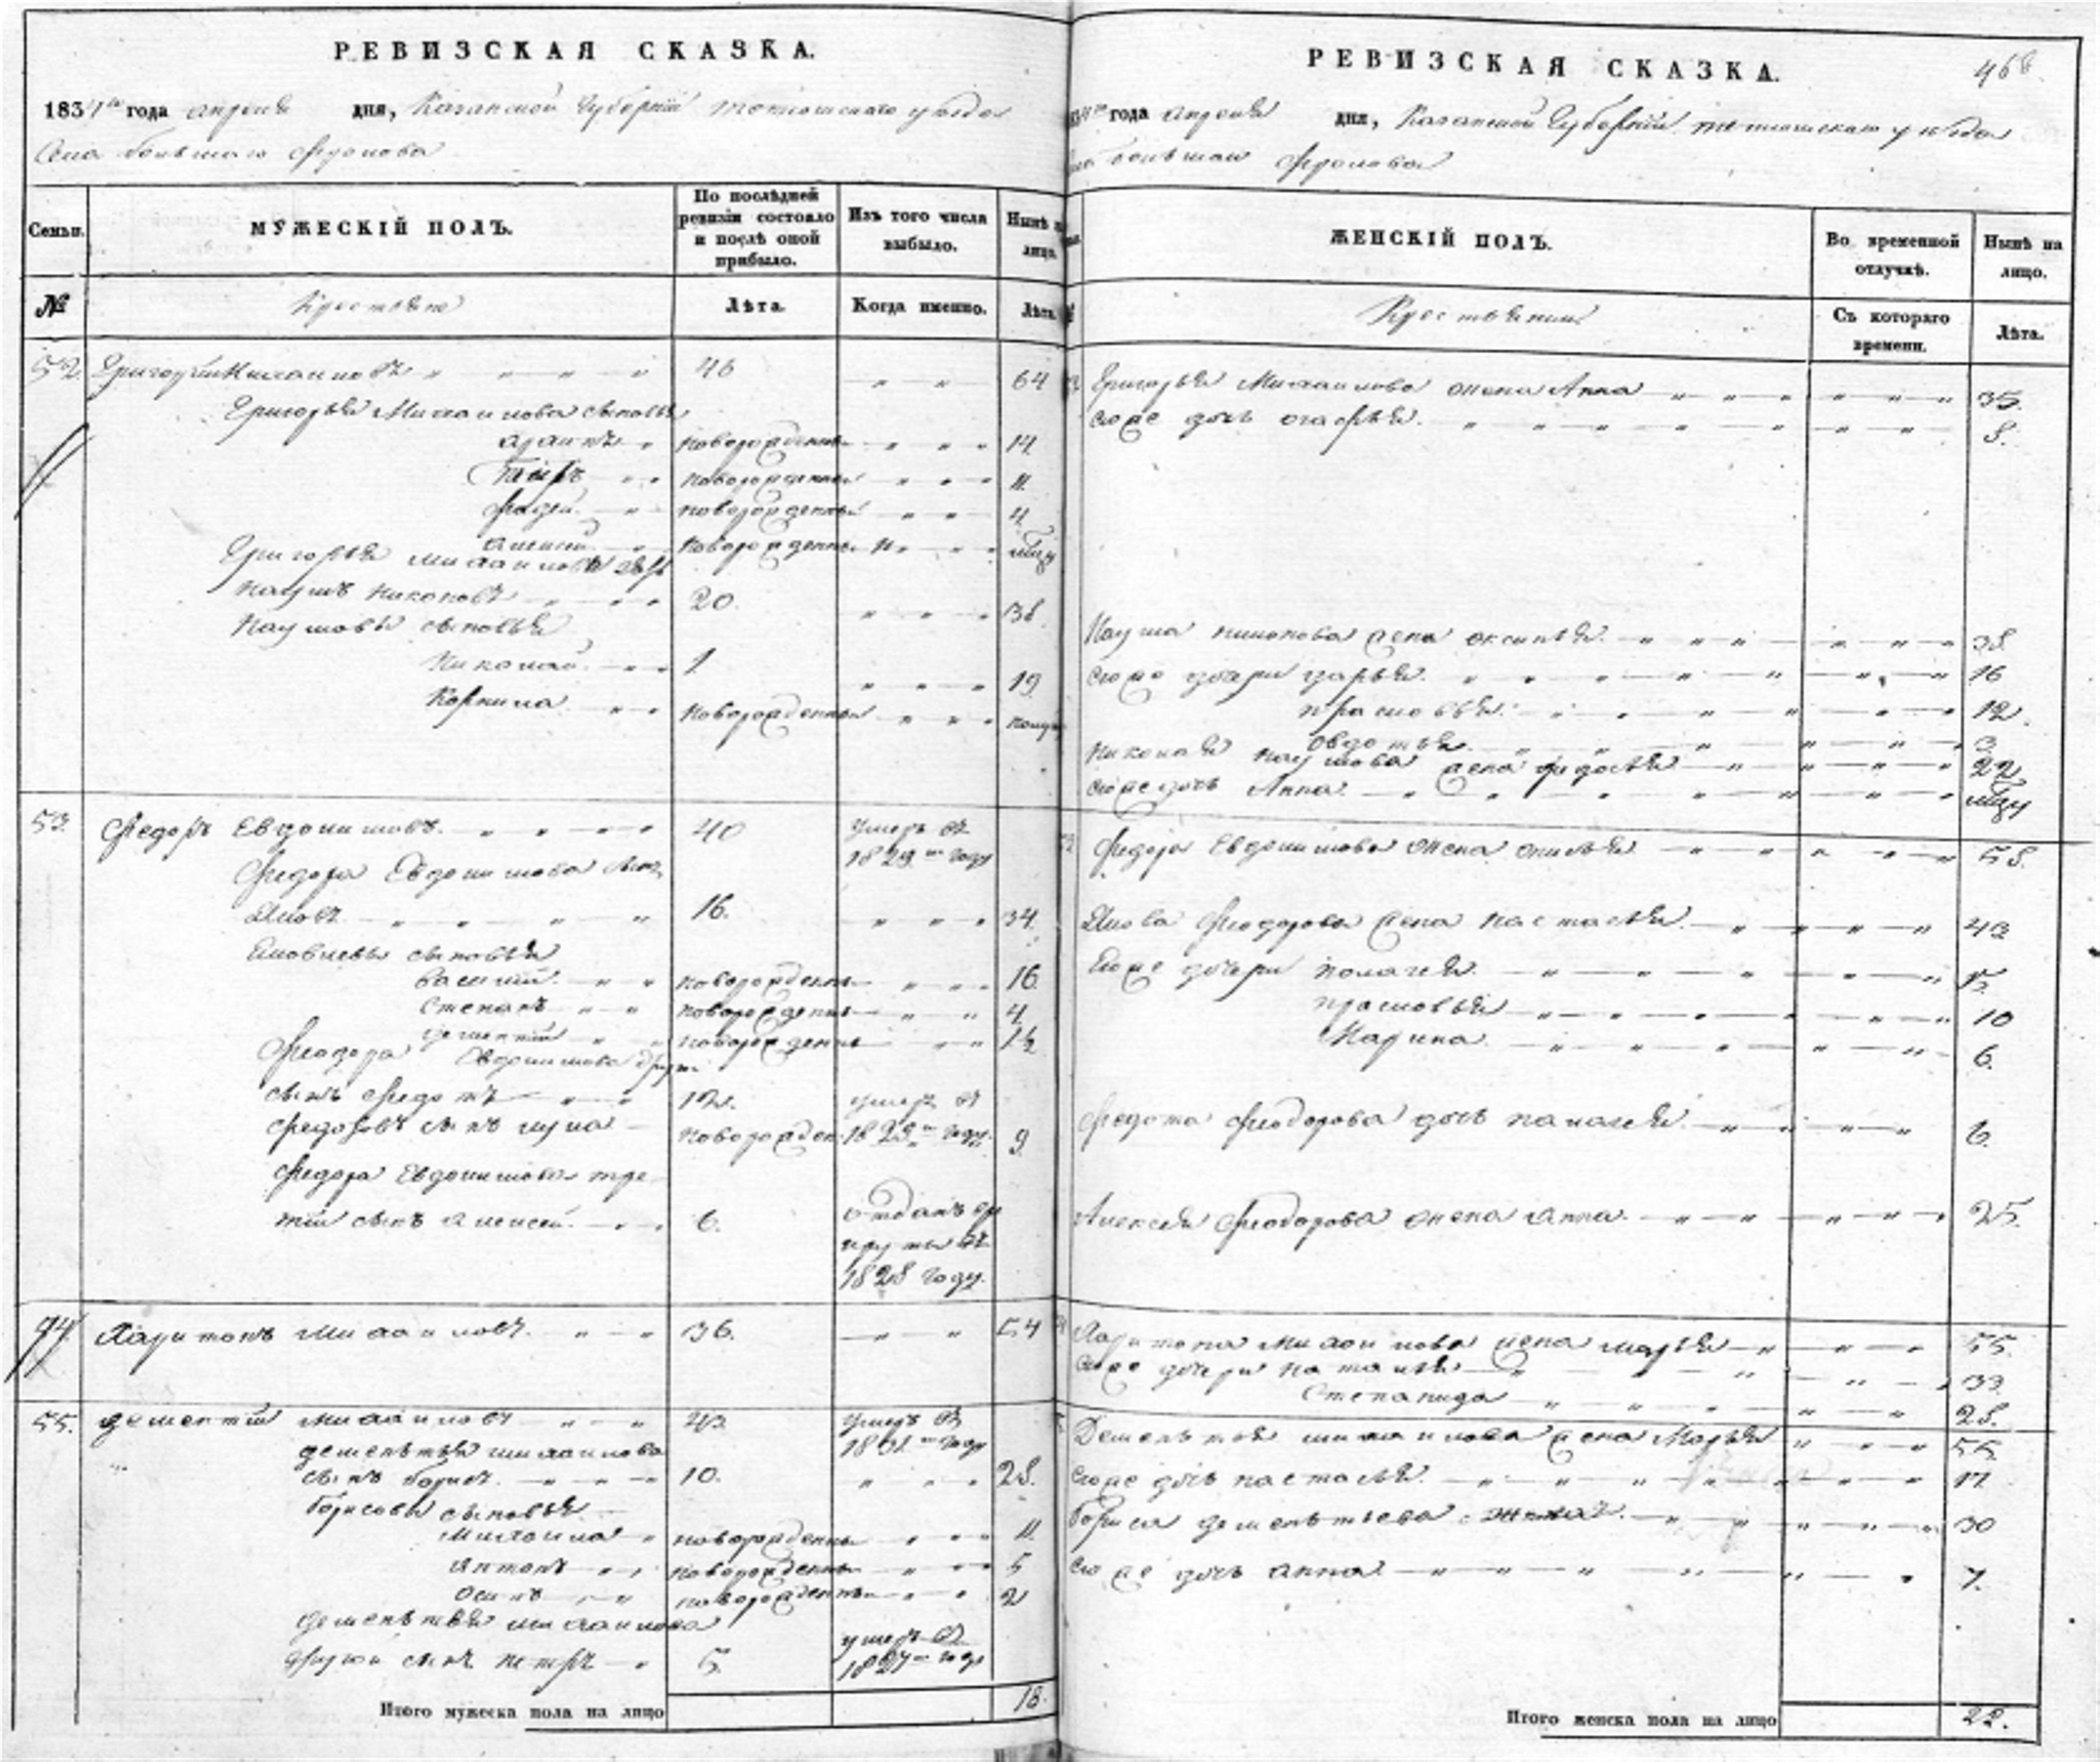 РЕВИЗСКАЯ СКАЗКА.
1834го года апреля дня, Казанской Губернии тетюшскаго уезда
Села большаго Фролова
Семьи.
МУЖЕСКІЙ ПОЛЪ.
По послѣдней ревизіи состояло и послѣ оной прибыло.
Изъ того числа выбыло.
Нынѣ на лицо.
№
Крестьяне
Лѣта.
Когда именно.
Лѣта.
52. Григорій Михаиловъ 46 64
Григорья Михаилова сыновья
новорожденный 14
Петръ новорожденный 11
Фадей новорожденный 4
новорожденный
Григорья Михаилова
Наумъ 20. 38.
Наумовы сыновья
Николай 1 19
Корнила новорожденный
53. Федоръ Евдокимовъ. 40 умеръ въ 1829м году
Федора Евдокимова сынъ
Яковъ 16. 34.
Яковлевы сыновья
Василий новорожденный 16.
Степанъ новорожденный 4
Дементий новорожденный
Феодора Евдокимова другой
сынъ Федотъ 12. умеръ въ
Федотовъ сынъ Лука новорожден 1828м году. 9
Федора Евдокимова тре
тій сынъ Алексей. 6. отданъ въ
рекруты въ
1828 году.
54 Харитонъ Михаиловъ. 36. 54
55. Дементій Михаиловъ умеръ въ 1831м году
Дементья Михаилова
сынъ Борисъ. 10. 28.
Борисовы сыновья
Михаила новорожденный 11.
Антонъ новорожденный 5
Осипъ новорожденный 2
Дементья Михаилова
другой сынъ Петръ 5. умеръ въ 1827м году
Итого мужеска пола на лицо 18.
РЕВИЗСКАЯ СКАЗКА. 468.
года апреля дня, Казанской Губернии тетюшскаго уезда
большаго Фролова
ЖЕНСКІЙ ПОЛЪ.
Во временной отлучкѣ.
Нынѣ на лицо.
Крестьянки
Съ котораго времени.
Лѣта.
Григорья Михаилова жена Анна 35.
ево же дочь 8.
Наума жена Оксинья 38
ево же дочери Дарья. 16
Прасковья. 12.
Овдотья 3
Николая Наумова жена Федосья 22
ево же дочь Анна.
Федора Евдокимова жена 58.
Якова Феодорова жена Настасья 43
ево же дочери Пелагея
Прасковья 10
Марина 6.
Федота Феодорова дочь Палагея 6.
Алексея Феодорова жена Анна. 25.
Харитона Михаилова жена Марья 55.
ево же дочери Наталья 33
Степанида 28.
Дементья Михаилова жена Марья 55
ево же дочь Настасья. 17
Бориса Дементьева 30
ево же дочь Анна 7.
Итого женска пола на лицо 22.